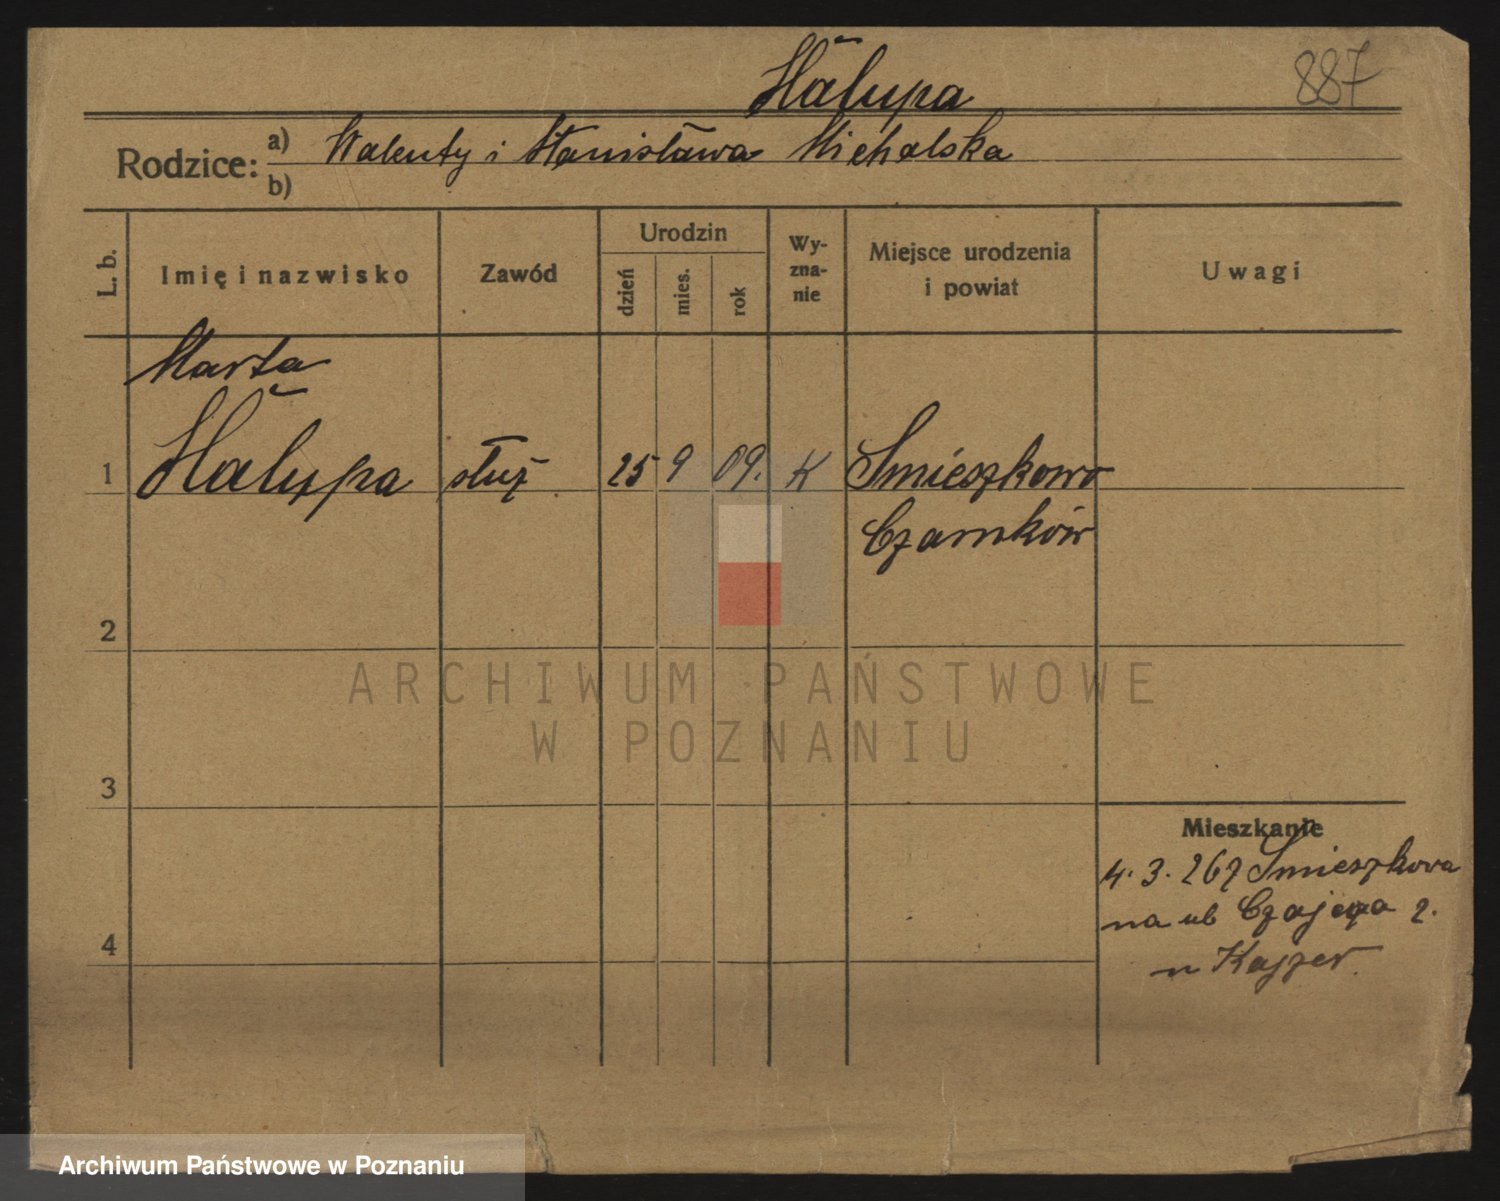 Hałupa
887
Rodzice: a) Walenty i Stanisława Michalska
b)
L. b.
Imię i nazwisko
Zawód
Urodzin
dzień
mies.
rok
Wy-
zna-
nie
Miejsce urodzenia
i powiat
Uwagi
Marta
1 Hałupa służ 25 9 09. K Śmieszkowo
Czarnków
2
ARCHIWUM PAŃSTWOWE
W POZNANIU
3
Mieszkanie
4. 3. 267 Śmieszkova
na ub
4
Kajzer
Archiwum Państwowe w Poznaniu